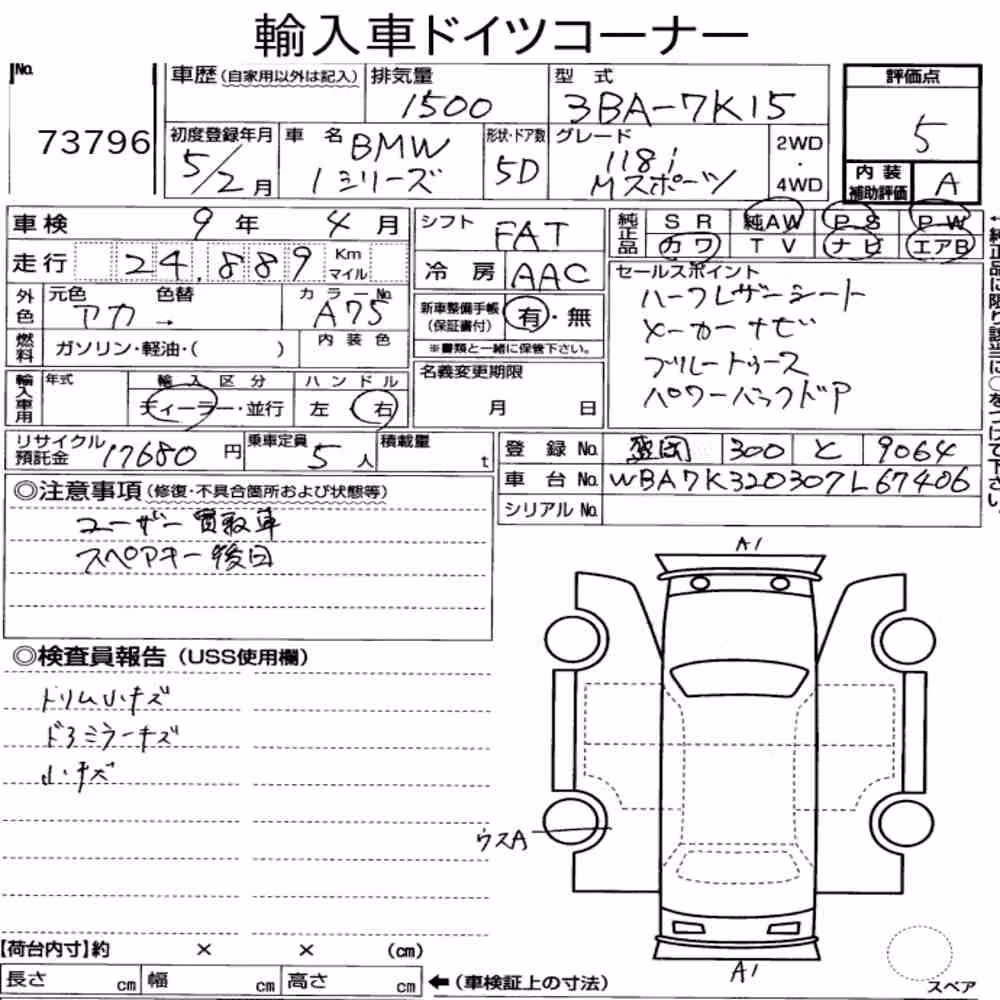 輸入車ドイツコーナー
No. 73796
車歴(自家用以外は記入) 排気量 1500 型式 3BA-7K15
評価点 5
初度登録年月 5/2月 車名 BMW 1シリーズ 形状・ドア数 5D グレード 118i Mスポーツ 2WD・4WD
内装補助評価 A
車検 9年 4月 シフト FAT
純正品 SR 純AW PS PW
カワ TV ナビ エアB
走行 24,889 Km マイル 冷房 AAC
セールスポイント
ハーフレザーシート
メーカーナビ
ブルートゥース
パワーバックドア
外色 元色 アカ → 色替 カラーNo. A75
新車整備手帳(保証書付) 有・無
※書類と一緒に保管下さい。
燃料 ガソリン・軽油・( ) 内装色
名義変更期限 月 日
輸入車用 年式 輸入区分 ディーラー・並行 ハンドル 左・右
リサイクル預託金 17680円 乗車定員 5人 積載量 t
登録No. 盛岡 300 と 9064
車台No. WBA7K320307L67406
シリアルNo.
◎注意事項(修復・不具合箇所および状態等)
ユーザー買取車
スペアキー後日
◎検査員報告(USS使用欄)
ドリム小キズ
ドアミラーキズ
小キズ
A1
ウスA
A1
スペア
【荷台内寸】約 × × (cm)
長さ cm 幅 cm 高さ cm ←(車検証上の寸法)